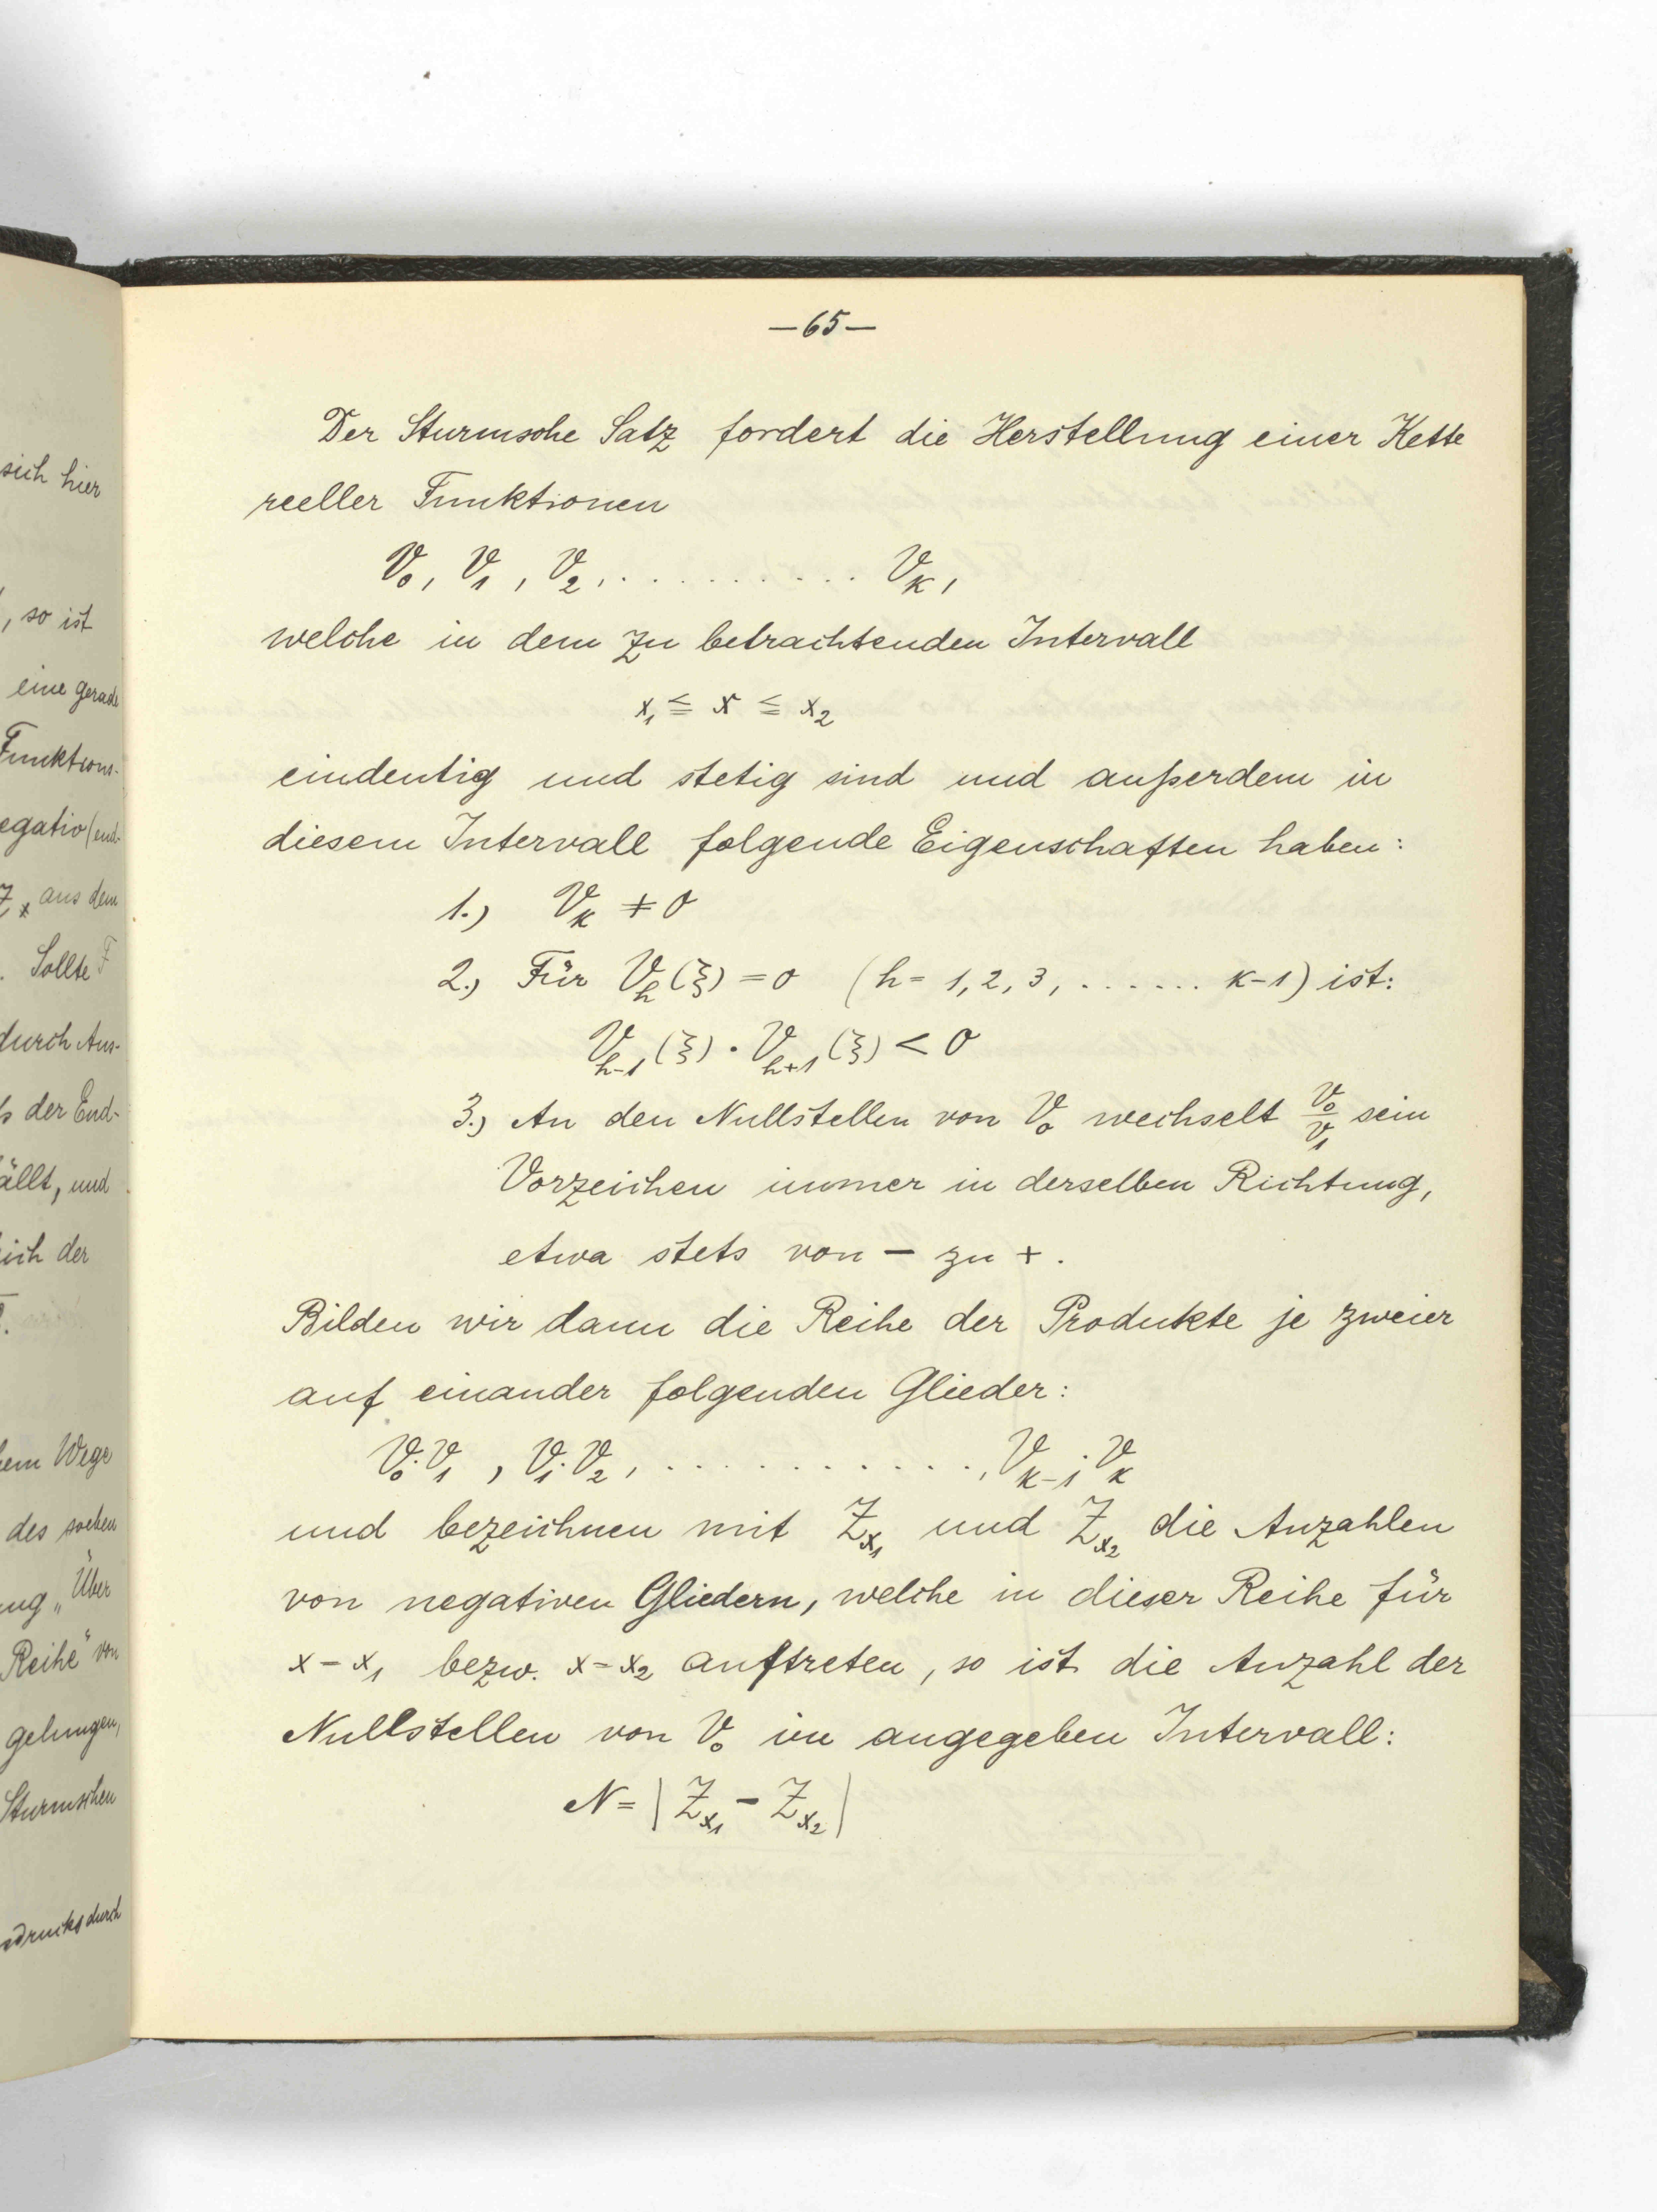 sich hier
, so ist
eine gerade
Funktions-
egativ (end-
Z_x aus dem
. Sollte F
durch Aus-
der End-
ällt, und
ich der
em Wege
des soeben
ung „Über
Reihe" von
gelungen,
Sturmschen
drucks durch
—65—
Der Sturmsche Satz fordert die Herstellung einer Kette
reeller Funktionen
V₀, V₁, V₂, . . . . . . . . . . . Vₖ,
welche in dem zu betrachtenden Intervall
x₁ ≦ x ≦ x₂
eindeutig und stetig sind und außerdem in
diesem Intervall folgende Eigenschaften haben:
1.) Vₖ ≠ 0
2.) Für V_h(ξ) = 0 (h = 1, 2, 3, . . . . . . k-1) ist:
V_{h-1}(ξ) · V_{h+1}(ξ) < 0
3.) An den Nullstellen von V₀ wechselt V₀/V₁ sein
Vorzeichen immer in derselben Richtung,
etwa stets von – zu +.
Bilden wir dann die Reihe der Produkte je zweier
auf einander folgenden Glieder:
V₀·V₁, V₁·V₂, . . . . . . . . . . . ., V_{k-1}·Vₖ
und bezeichnen mit Z_{x₁} und Z_{x₂} die Anzahlen
von negativen Gliedern, welche in dieser Reihe für
x = x₁ bezw. x = x₂ auftreten, so ist die Anzahl der
Nullstellen von V₀ im angegeben Intervall:
N = | Z_{x₁} - Z_{x₂} |